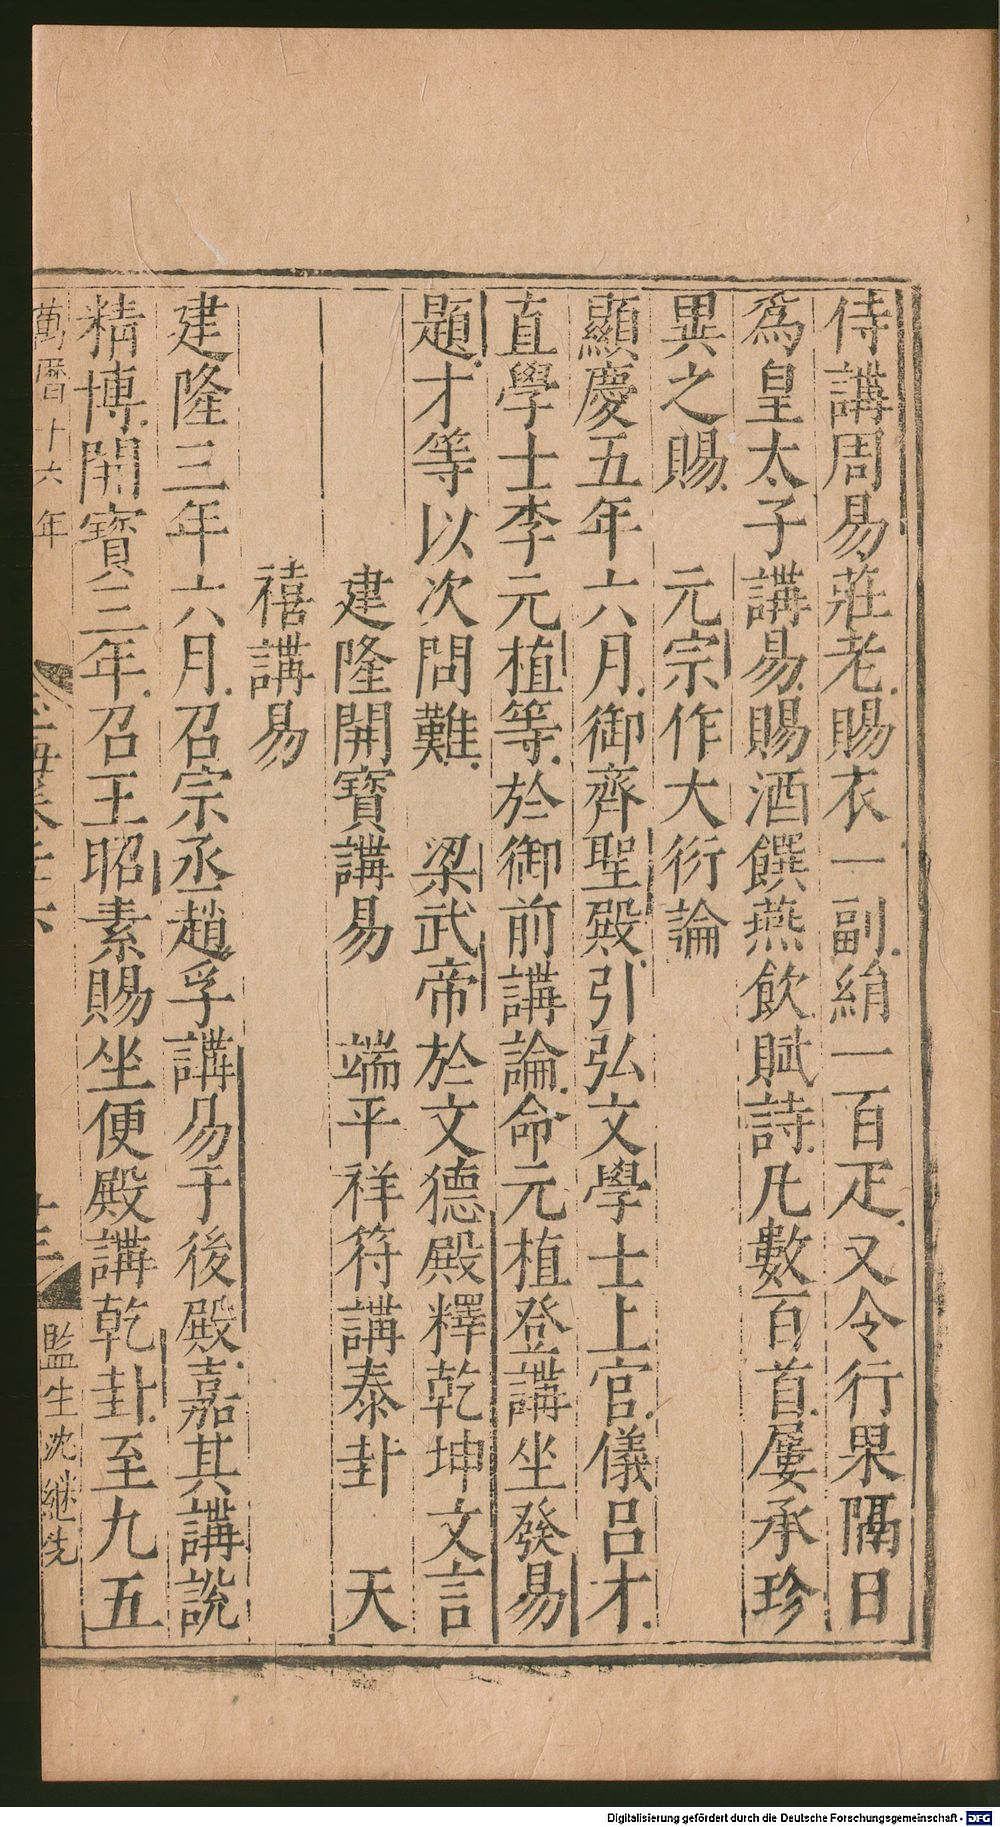 侍講周易莊老賜衣一副絹一百疋又令行果隔日
爲皇太子講易賜酒饌燕飲賦詩凡數百首屢承珍
異之賜 元宗作大衍論
顯慶五年六月御齊聖殿引弘文學士上官儀呂才
直學士李元植等於御前講論命元植登講坐發易
題才等以次問難 梁武帝於文德殿釋乾坤文言
建隆開寶講易 端平祥符講泰卦 天
禧講易
建隆三年六月召宗丞趙孚講易于後殿嘉其講說
精博開寶三年召王昭素賜坐便殿講乾卦至九五
萬曆十六年
監生沈继先
Digitalisierung gefördert durch die Deutsche Forschungsgemeinschaft - DFG